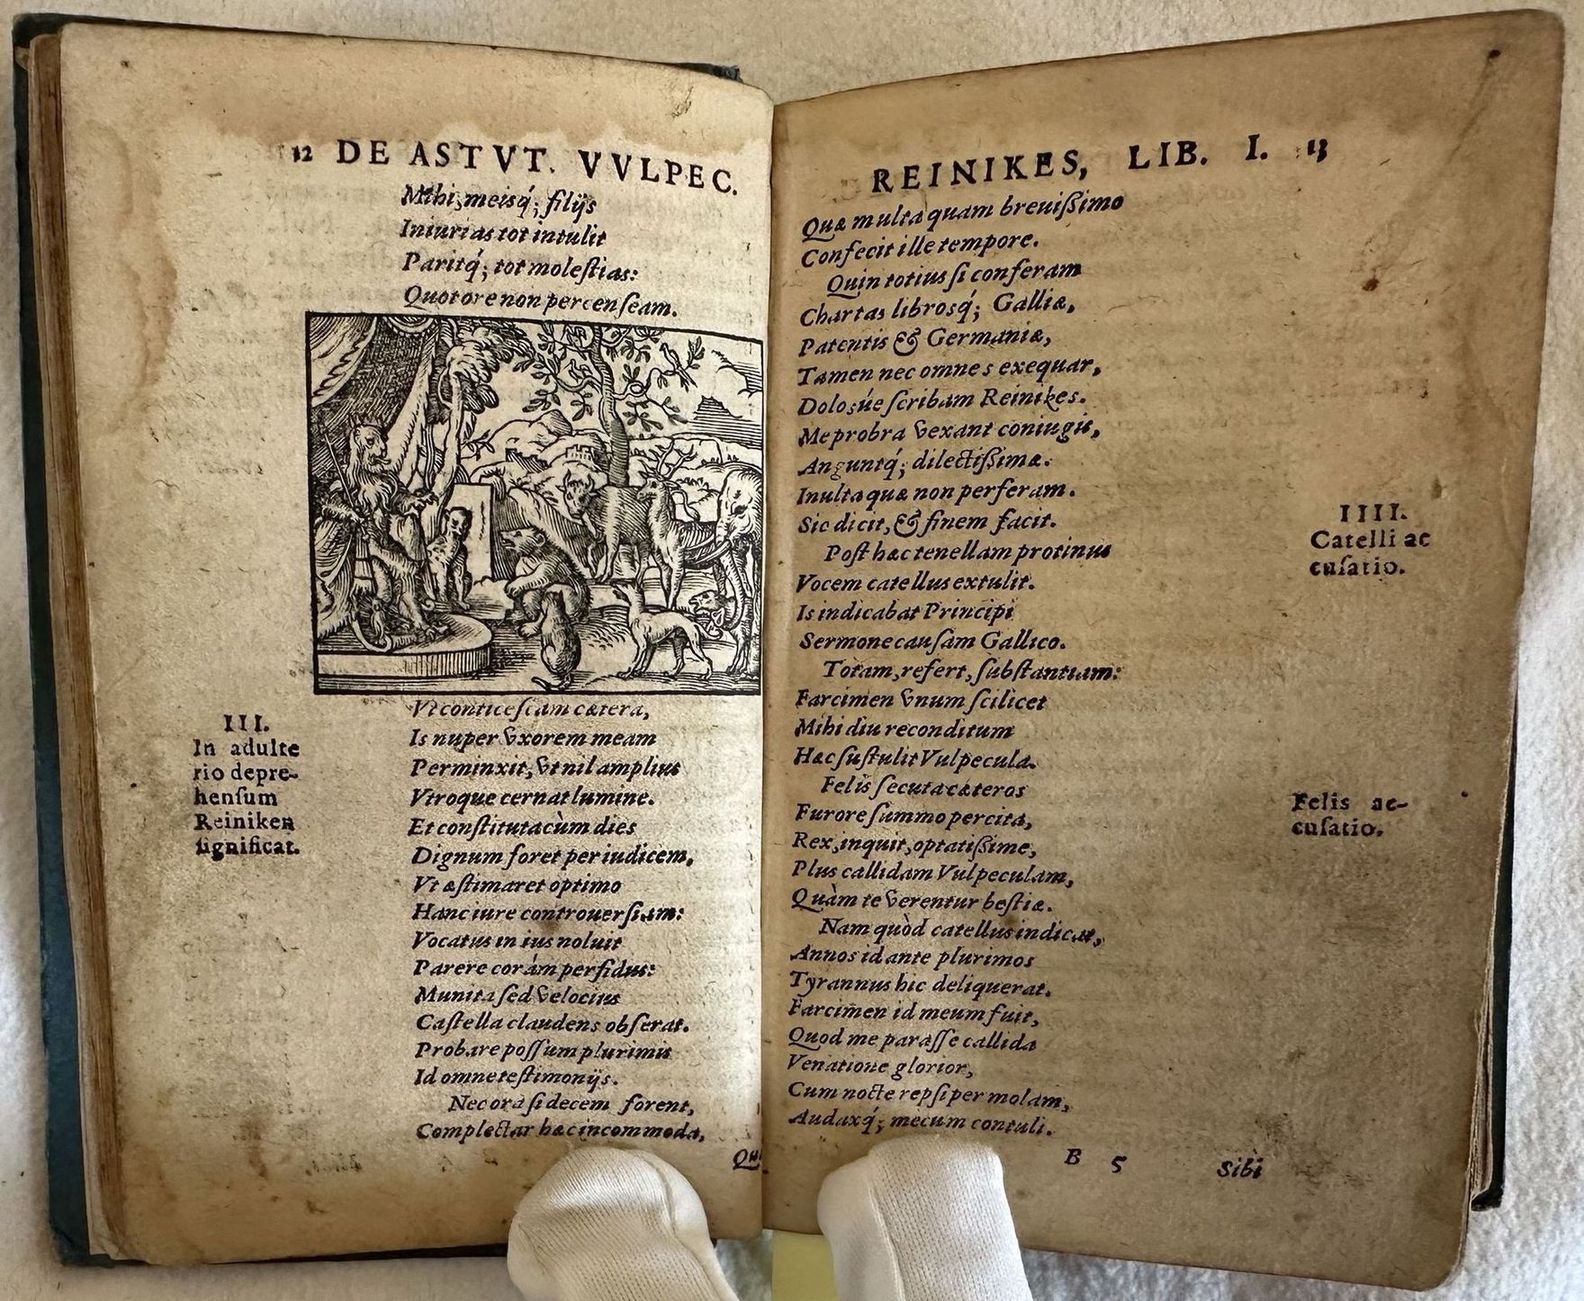 12 DE ASTVT. VVLPEC.
Mihi, meisq́; filijs
Iniurias tot intulit
Paritq́; tot moleſtias:
Quot ore non percenſeam.
Vt conticeſcam cætera,
III.
In adulte
rio depre-
henſum
Reiniken
ſignificat.
Is nuper vxorem meam
Perminxit, vt nil amplius
Vtroque cernat lumine.
Et conſtituta cùm dies
Dignum foret per iudicem,
Vt æſtimaret optimo
Hanc iure controuerſiam:
Vocatus in ius noluit
Parere coràm perfidus:
Munita ſed velocius
Caſtella claudens obſerat.
Probare poſſum plurimis
Id omne teſtimonijs.
Nec ora ſi decem forent,
Complectar hæc incommoda,
Quæ
REINIKES, LIB. I. 13
Quæ multa quam breuiſſimo
Confecit ille tempore.
Quin totius ſi conferam
Chartas librosq́; Galliæ,
Patentis & Germaniæ,
Tamen nec omnes exequar,
Dolosúe ſcribam Reinikes.
Me probra vexant coniugis,
Anguntq́; dilectiſſimæ.
Inulta quæ non perferam.
Sic dicit, & finem facit.
IIII.
Catelli ac
cuſatio.
Poſt hæc tenellam protinus
Vocem catellus extulit.
Is indicabat Principi
Sermone cauſam Gallico.
Totam, refert, ſubſtantiam:
Farcimen vnum ſcilicet
Mihi diu reconditum
Hæc ſuſtulit Vulpecula.
Felis ac-
cuſatio.
Felis ſecuta cæteros
Furore ſummo percita,
Rex, inquit, optatiſſime,
Plus callidam Vulpeculam,
Quàm te verentur beſtiæ.
Nam quòd catellus indicat,
Annos id ante plurimos
Tyrannus hic deliquerat.
Farcimen id meum fuit,
Quod me paraſſe callida
Venatione glorior,
Cum nocte repſi per molam,
Audaxq́; mecum contuli.
B 5
Sibi